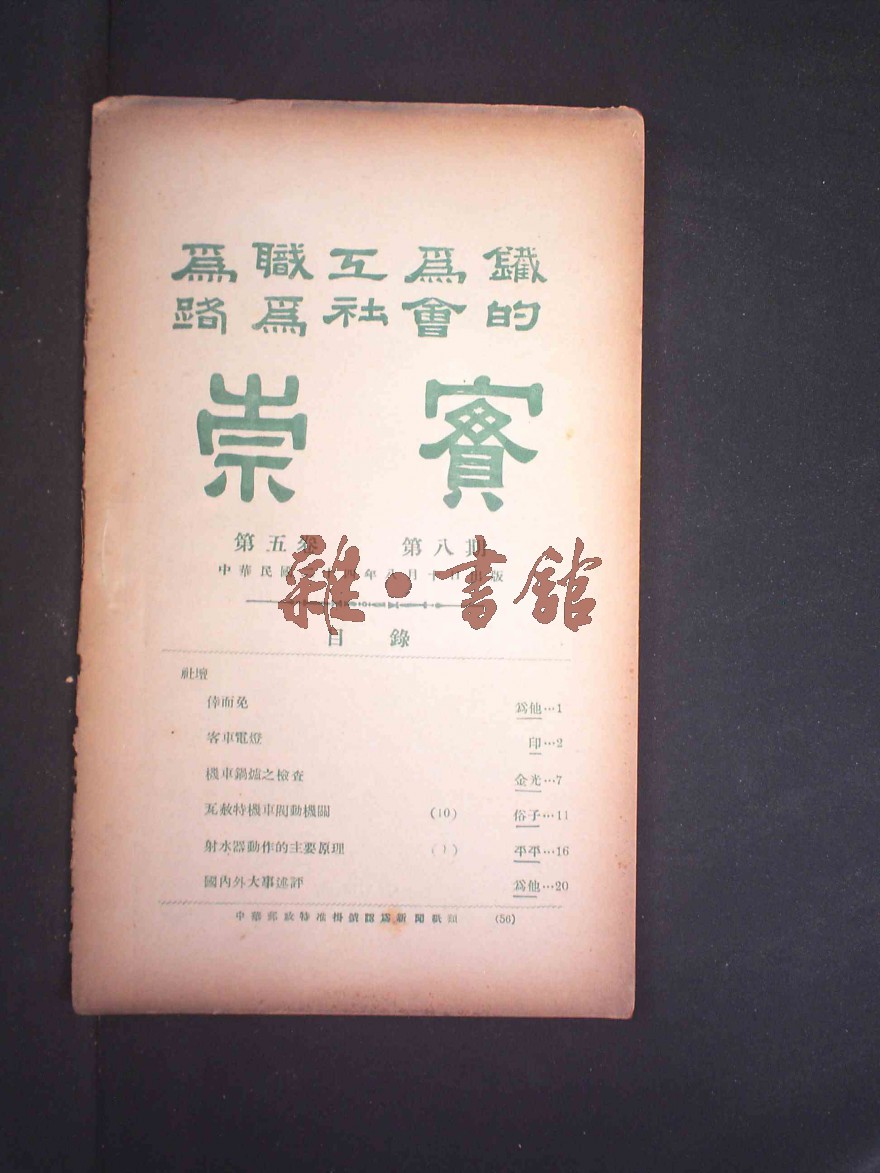 爲職工爲鐵
路爲社會的
崇實
第五卷 第八期
中華民國二十四年八月十日出版
雜·書館
目錄
社壇
倖而免 爲他…1
客車電燈 印…2
機車鍋爐之檢查 金光…7
瓦赦特機車閥動機關 (10) 俗子…11
射水器動作的主要原理 (1) 平平…16
國內外大事述評 爲他…20
中華郵政特准掛號認爲新聞紙類 (56)